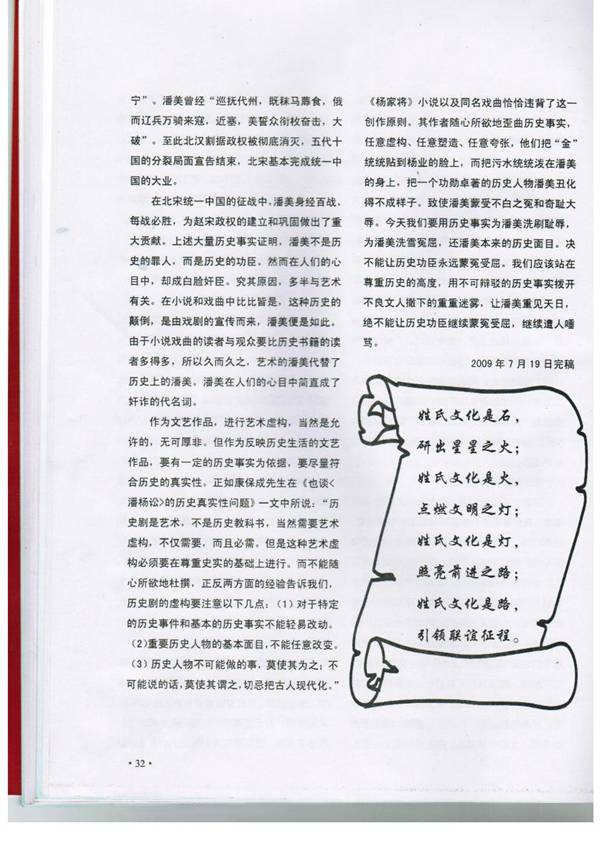 宁”。潘美曾经“巡抚代州，既秣马蓐食，俄
而辽兵万骑来寇，近塞，美誓众衔枚奋击，大
破”。至此北汉割据政权被彻底消灭，五代十
国的分裂局面宣告结束，北宋基本完成统一中
国的大业。
在北宋统一中国的征战中，潘美身经百战，
每战必胜，为赵宋政权的建立和巩固做出了重
大贡献。上述大量历史事实证明，潘美不是历
史的罪人，而是历史的功臣。然而在人们的心
目中，却成白脸奸臣。究其原因，多半与艺术
有关。在小说和戏曲中比比皆是，这种历史的
颠倒，是由戏剧的宣传而来，潘美便是如此。
由于小说戏曲的读者与观众要比历史书籍的读
者多得多，所以久而久之，艺术的潘美代替了
历史上的潘美。潘美在人们的心目中简直成了
奸诈的代名词。
作为文艺作品，进行艺术虚构，当然是允
许的，无可厚非。但作为反映历史生活的文艺
作品，要有一定的历史事实为依据，要尽量符
合历史的真实性。正如康保成先生在《也谈<
潘杨讼>的历史真实性问题》一文中所说：“历
史剧是艺术，不是历史教科书，当然需要艺术
虚构，不仅需要，而且必需。但是这种艺术虚
构必须要在尊重史实的基础上进行。而不能随
心所欲地杜撰，正反两方面的经验告诉我们，
历史剧的虚构要注意以下几点：(1)对于特定
的历史事件和基本的历史事实不能轻易改动。
(2)重要历史人物的基本面目，不能任意改变。
(3)历史人物不可能做的事，莫使其为之；不
可能说的话，莫使其谓之，切忌把古人现代化。”
《杨家将》小说以及同名戏曲恰恰违背了这一
创作原则。其作者随心所欲地歪曲历史事实，
任意虚构、任意塑造、任意夸张，他们把“金”
统统贴到杨业的脸上，而把污水统统泼在潘美
的身上，把一个功勋卓著的历史人物潘美丑化
得不成样子。致使潘美蒙受不白之冤和奇耻大
辱。今天我们要用历史事实为潘美洗刷耻辱，
为潘美洗雪冤屈，还潘美本来的历史面目。决
不能让历史功臣永远蒙冤受屈。我们应该站在
尊重历史的高度，用不可辩驳的历史事实拨开
不良文人撤下的重重迷雾，让潘美重见天日，
绝不能让历史功臣继续蒙冤受屈，继续遭人唾
骂。
2009年7月19日完稿
姓氏文化是石，
研出星星之火；
姓氏文化是火，
点燃文明之灯；
姓氏文化是灯，
照亮前进之路；
姓氏文化是路，
引领联谊征程。
·32·